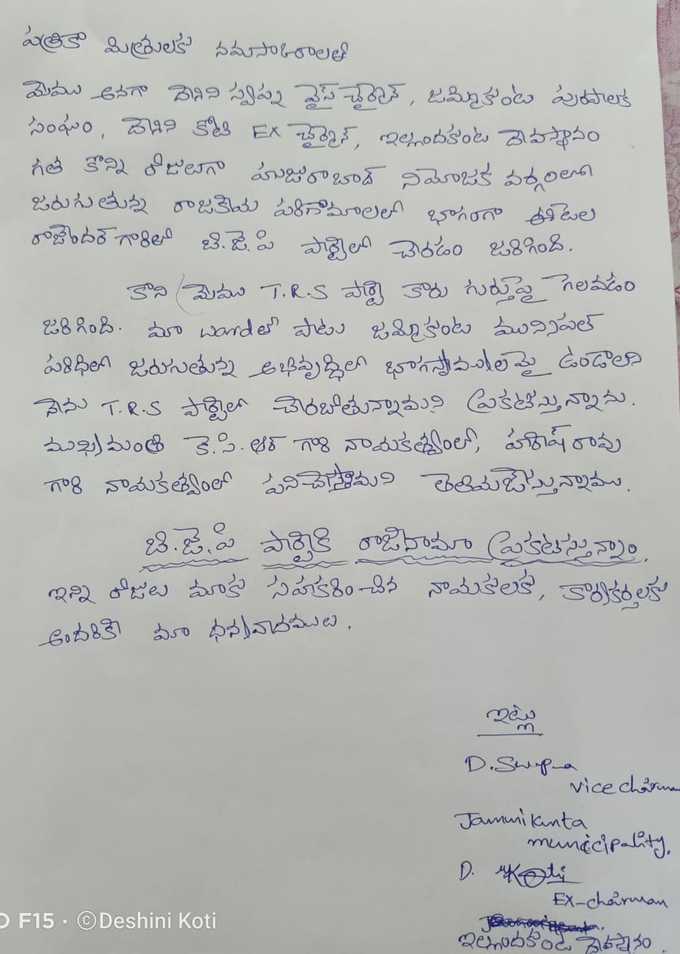 పత్రికా మిత్రులకు నమస్కారాలతో
మేము అనగా దేశిని స్వప్న వైస్ చైర్మెన్, జమ్మికుంట పురపాలక
సంఘం, దేశిని కోటి EX చైర్మెన్, ఇల్లందకుంట దేవస్థానం
గత కొన్ని రోజులుగా హుజురాబాద్ నియోజక వర్గంలో
జరుగుతున్న రాజకీయ పరిణామాలలో భాగంగా ఈటెల
రాజేందర్ గారితో బి.జె.పి పార్టీలో చేరడం జరిగింది.
కాని (మేము T.R.S పార్టీ కారు గుర్తుపై గెలవడం
జరిగింది. మా wardతో పాటు జమ్మికుంట మునిసిపల్
పరిధిలో జరుగుతున్న అభివృద్ధిలో భాగస్వాములమై ఉండాలని
నేను T.R.S పార్టీలో చేరబోతున్నామని ప్రకటిస్తున్నాను.
ముఖ్యమంత్రి కె.సి.ఆర్ గారి నాయకత్వంలో, హరీష్ రావు
గారి నాయకత్వంలో పనిచేస్తామని తెలియజేస్తున్నాము.
బి.జె.పి పార్టీకి రాజీనామా ప్రకటిస్తున్నాం.
ఇన్ని రోజులు మాకు సహకరించిన నాయకులకు, కార్యకర్తలకు
అందరికీ మా ధన్యవాదములు.
ఇట్లు
D. Swapna
vice chairman
Jammikunta
municipality.
D. Koti
EX-chairman
ఇల్లందకుంట దేవస్థానం.
F15 · ©Deshini Koti